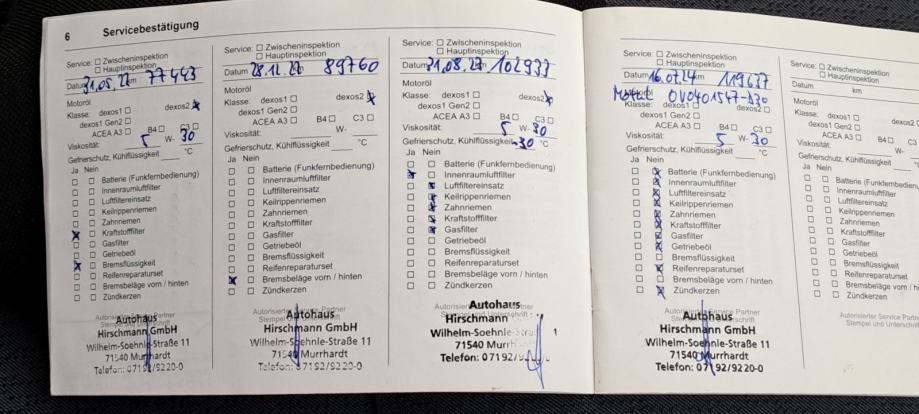 6 Servicebestätigung
Service: Zwischeninspektion
Hauptinspektion
Datum 31.05.22 km 77443
Motoröl
Klasse: dexos1 dexos2
dexos1 Gen2
ACEA A3 B4 C3
Viskosität: 5 W- 30
Gefrierschutz, Kühlflüssigkeit °C
Ja Nein
Batterie (Funkfernbedienung)
Innenraumluftfilter
Luftfiltereinsatz
Keilrippenriemen
Zahnriemen
Kraftstofffilter
Gasfilter
Getriebeöl
Bremsflüssigkeit
Reifenreparaturset
Bremsbeläge vorn / hinten
Zündkerzen
Autorisierter Service Partner
Stempel und Unterschrift
Autohaus
Hirschmann GmbH
Wilhelm-Soehnle-Straße 11
71540 Murrhardt
Telefon: 07192/9220-0
Service: Zwischeninspektion
Hauptinspektion
Datum 28.12.22 km 89760
Motoröl
Klasse: dexos1 dexos2
dexos1 Gen2
ACEA A3 B4 C3
Viskosität: 5 W- 30
Gefrierschutz, Kühlflüssigkeit °C
Ja Nein
Batterie (Funkfernbedienung)
Innenraumluftfilter
Luftfiltereinsatz
Keilrippenriemen
Zahnriemen
Kraftstofffilter
Gasfilter
Getriebeöl
Bremsflüssigkeit
Reifenreparaturset
Bremsbeläge vorn / hinten
Zündkerzen
Autorisierter Service Partner
Stempel und Unterschrift
Autohaus
Hirschmann GmbH
Wilhelm-Soehnle-Straße 11
71540 Murrhardt
Telefon: 07192/9220-0
Service: Zwischeninspektion
Hauptinspektion
Datum 31.08.23 km 102933
Motoröl
Klasse: dexos1 dexos2
dexos1 Gen2
ACEA A3 B4 C3
Viskosität: 5 W- 30
Gefrierschutz, Kühlflüssigkeit -30 °C
Ja Nein
Batterie (Funkfernbedienung)
Innenraumluftfilter
Luftfiltereinsatz
Keilrippenriemen
Zahnriemen
Kraftstofffilter
Gasfilter
Getriebeöl
Bremsflüssigkeit
Reifenreparaturset
Bremsbeläge vorn / hinten
Zündkerzen
Autorisierter Service Partner
Stempel und Unterschrift
Autohaus
Hirschmann
Wilhelm-Soehnle-Stra
71540 Murrh
Telefon: 07192/9
Service: Zwischeninspektion
Hauptinspektion
Datum 16.07.24 km 119637
Motoröl OV0401547-D30
Klasse: dexos1 dexos2
dexos1 Gen2
ACEA A3 B4 C3
Viskosität: 5 W- 30
Gefrierschutz, Kühlflüssigkeit °C
Ja Nein
Batterie (Funkfernbedienung)
Innenraumluftfilter
Luftfiltereinsatz
Keilrippenriemen
Zahnriemen
Kraftstofffilter
Gasfilter
Getriebeöl
Bremsflüssigkeit
Reifenreparaturset
Bremsbeläge vorn / hinten
Zündkerzen
Autorisierter Service Partner
Stempel und Unterschrift
Autohaus
Hirschmann GmbH
Wilhelm-Soehnle-Straße 11
71540 Murrhardt
Telefon: 07192/9220-0
Service: Zwischeninspektion
Hauptinspektion
Datum km
Motoröl
Klasse: dexos1
dexos1 Gen2
ACEA A3 B4
Viskosität: W-
Gefrierschutz, Kühlflüssigkeit
Ja Nein
Batterie (Funkfernbed
Innenraumluftfilter
Luftfiltereinsatz
Keilrippenriemen
Zahnriemen
Kraftstofffilter
Gasfilter
Getriebeöl
Bremsflüssigkeit
Reifenreparaturset
Bremsbeläge vorn
Zündkerzen
Autorisierter Service Partner
Stempel und Unterschrift